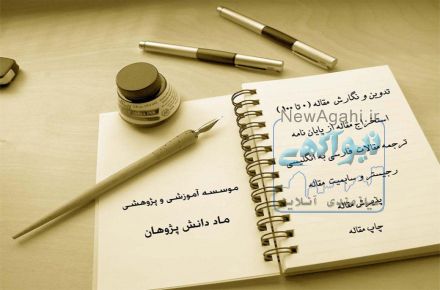 تدوین و نگارش مقاله (۰ تا ۱۰۰)
استخراج مقاله از پایان نامه
ترجمه مقالات فارسی به انگلیسی
رجیستر و سابمیت مقاله
پذیرش مقاله
چاپ مقاله
موسسه آموزشی و پژوهشی
ماد دانش پژوهان
NewAgahi.ir
نیوآگهی
نیازمندی آنلاین